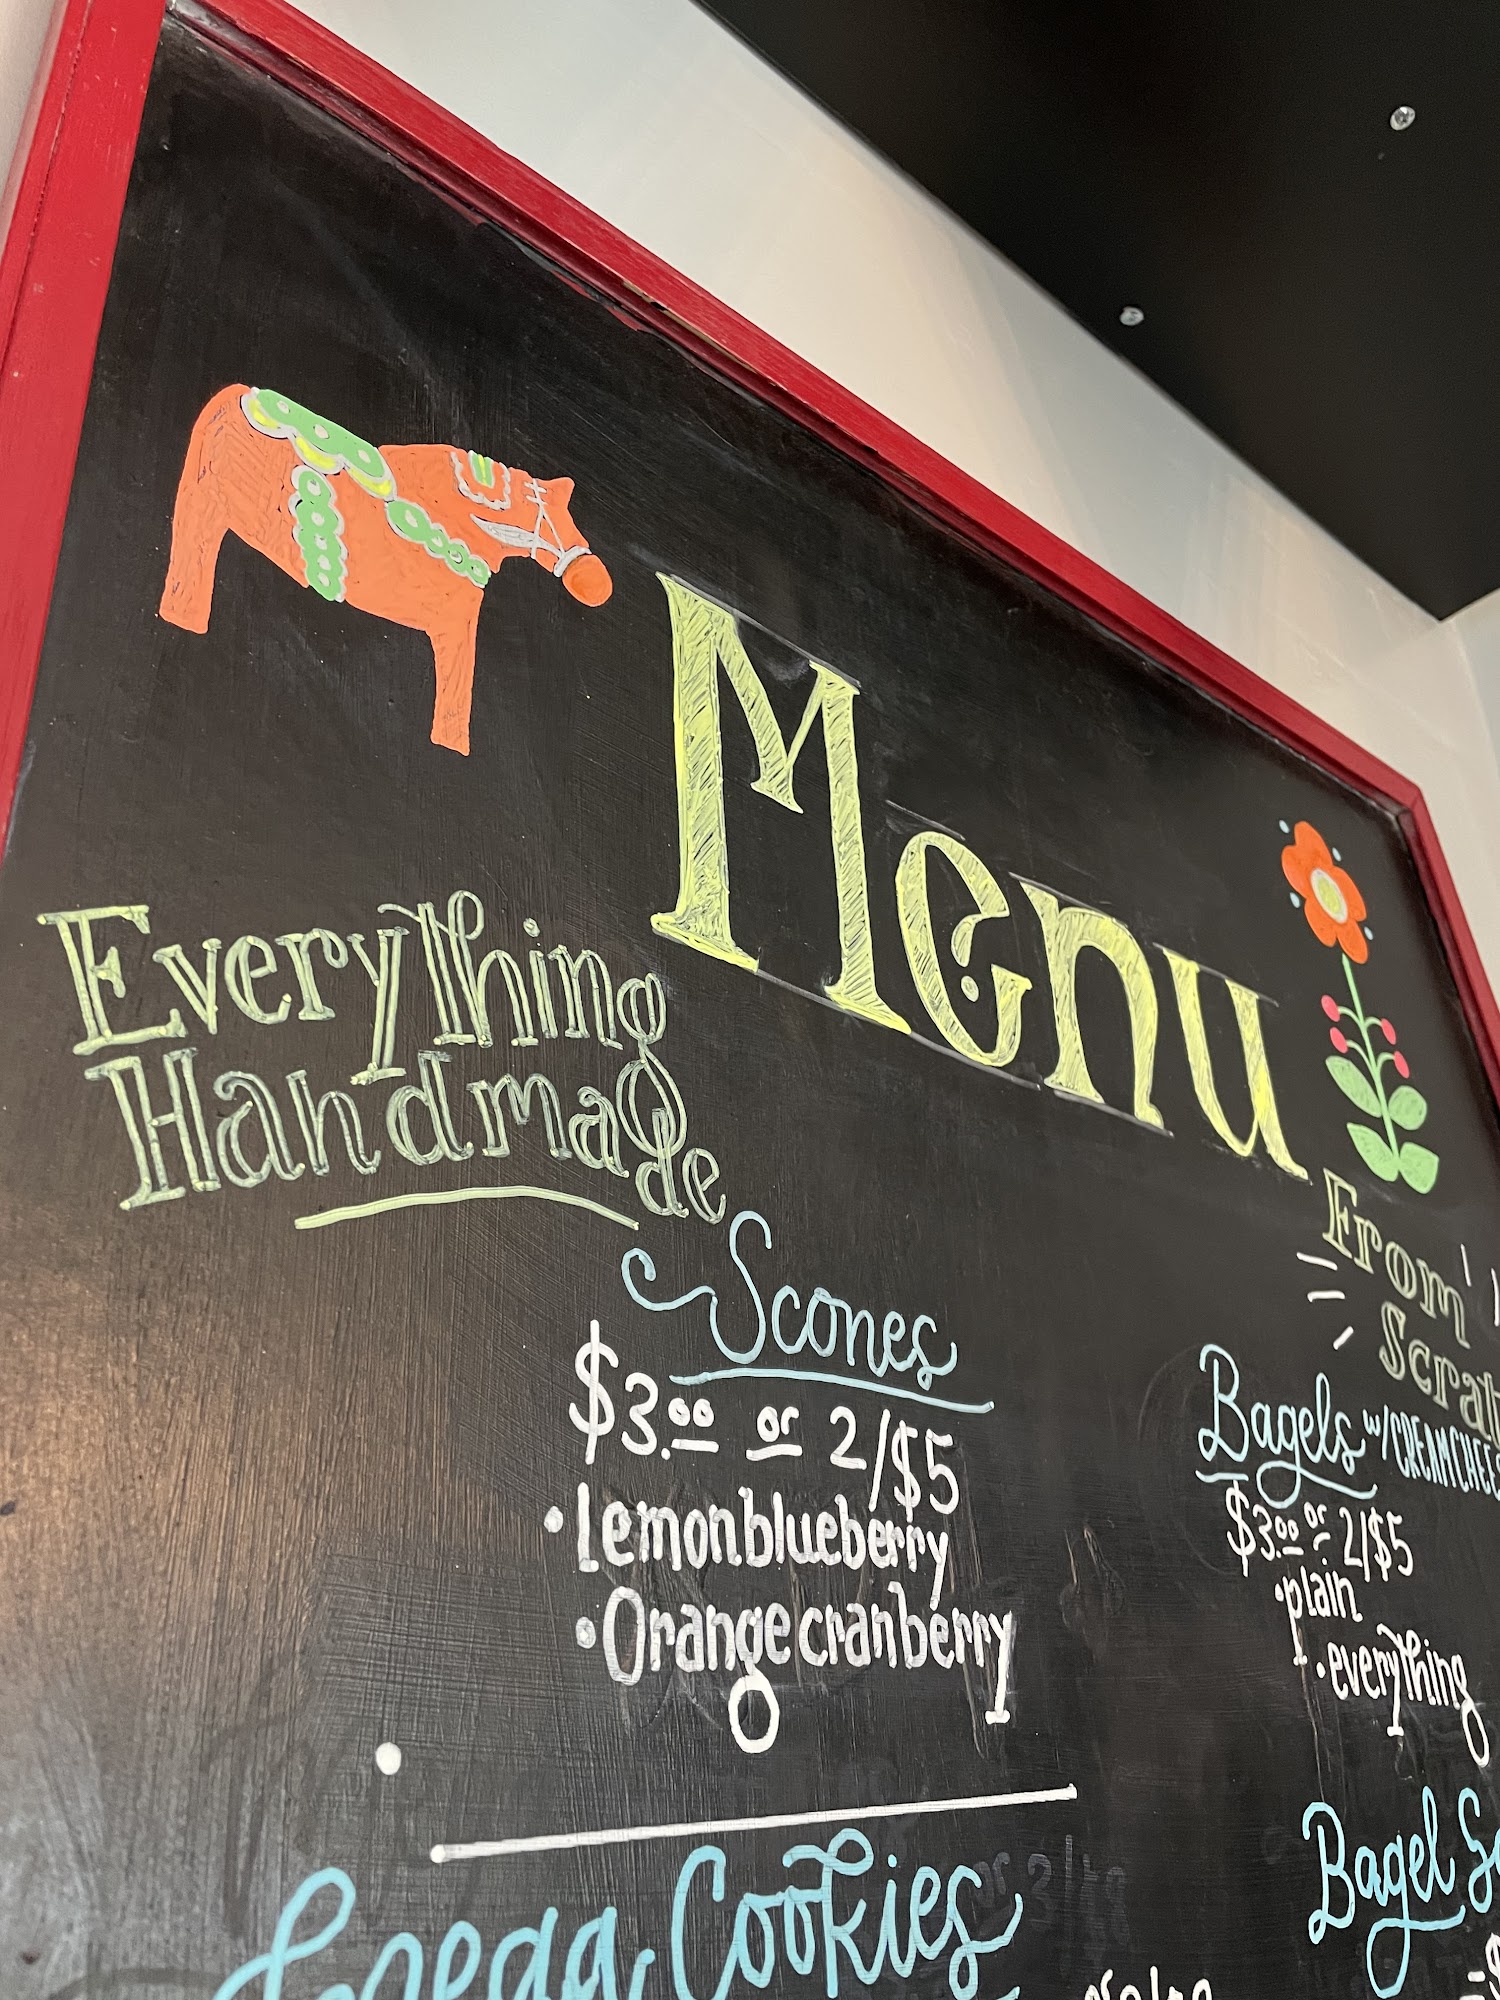 Menu
Everything
Handmade
From
Scones
$3.00 or 2/$5
• lemon blueberry
• Orange cranberry
Bagels w/CREAM
$3.00 or 2/$5
• plain
• everything
Cookies
Bagel